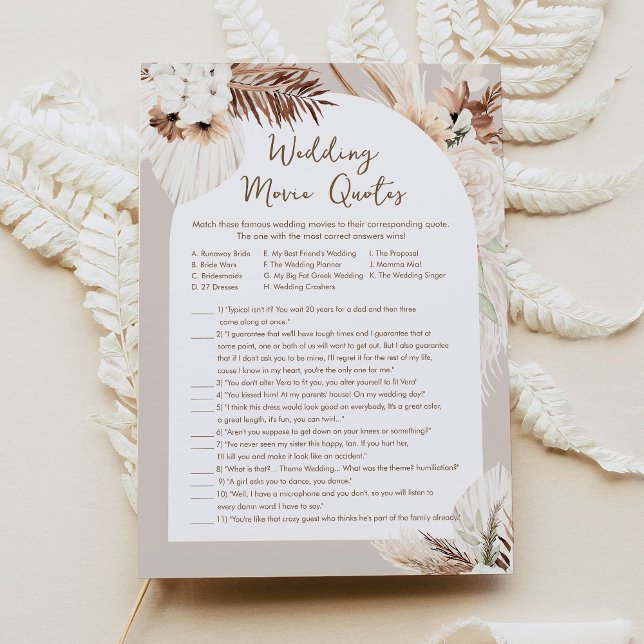 Wedding
Movie Quotes
Match these famous wedding movies to their corresponding quote.
The one with the most correct answers wins!
A. Runaway Bride E. My Best Friend's Wedding I. The Proposal
B. Bride Wars F. The Wedding Planner J. Mamma Mia!
C. Bridesmaids G. My Big Fat Greek Wedding K. The Wedding Singer
D. 27 Dresses H. Wedding Crashers
1) "Typical isn't it? You wait 20 years for a dad and then three
come along at once."
2) "I guarantee that we'll have tough times and I guarantee that at
some point, one or both of us will want to get out. But I also guarantee
that if I don't ask you to be mine, I'll regret it for the rest of my life,
cause I know in my heart, you're the only one for me."
3) "You don't alter Vera to fit you, you alter yourself to fit Vera"
4) "You kissed him! At my parents' house! On my wedding day!"
5) "I think this dress would look good on everybody, It's a great color,
a great length, it's fun, you can twirl..."
6) "Aren't you suppose to get down on your knees or something?"
7) "I've never seen my sister this happy, Ian. If you hurt her,
I'll kill you and make it look like an accident."
8) "What is that?... Theme Wedding... What was the theme? humiliation?"
9) "A girl asks you to dance, you dance."
10) "Well, I have a microphone and you don't, so you will listen to
every damn word I have to say."
11) "You're like that crazy guest who thinks he's part of the family already."